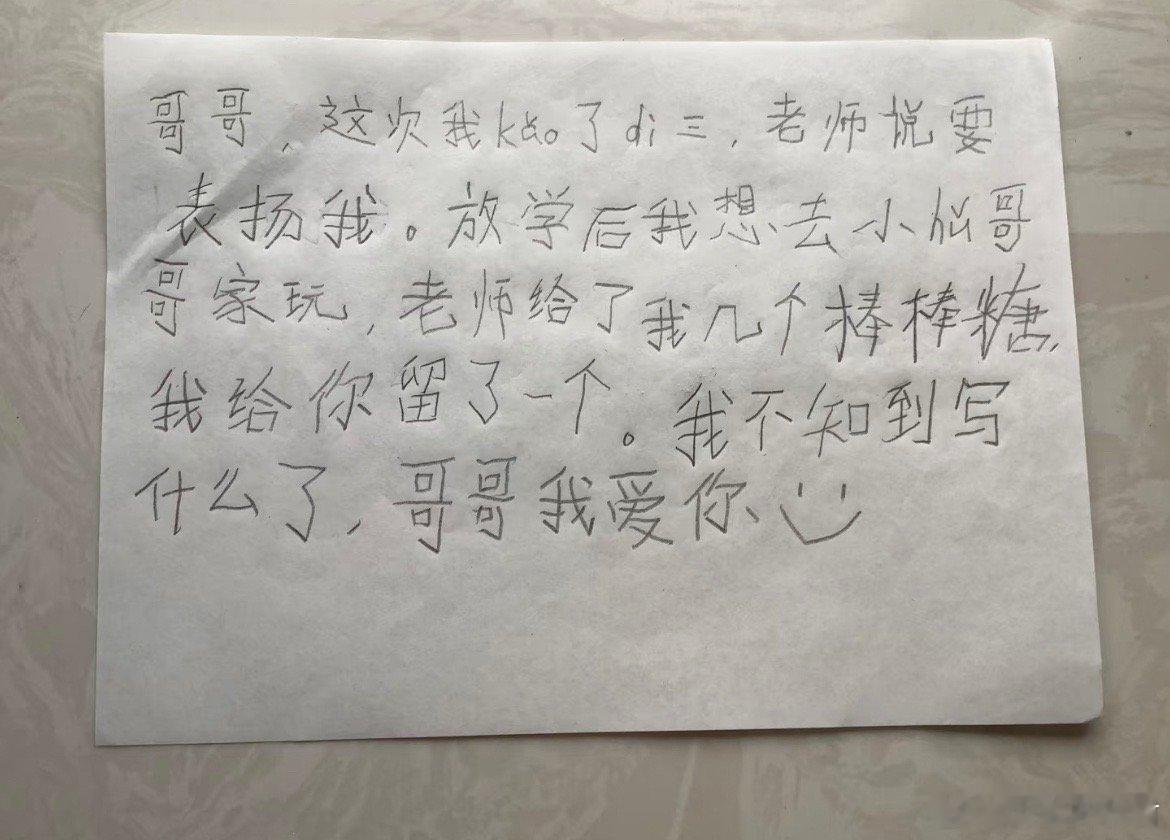 哥哥，这次我kǎo了di三，老师说要
表扬我。放学后我想去小 哥
哥家玩，老师给了我几个棒棒糖，
我给你留了一个。我不知到写
什么了，哥哥我爱你